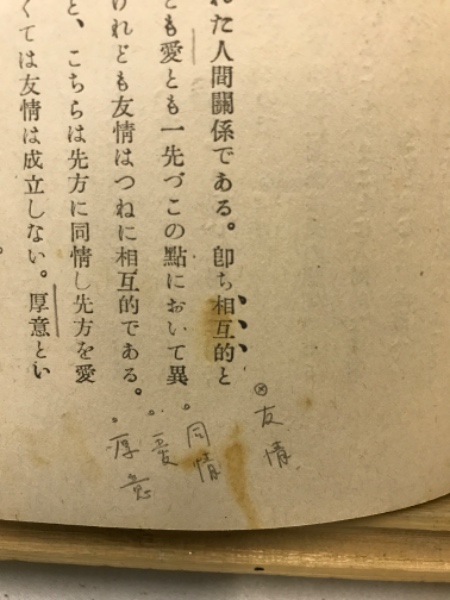 れた人間關係である。卽ち相互的と
も愛とも一先づこの點において異
けれども友情はつねに相互的である。
と、こちらは先方に同情し先方を愛
くては友情は成立しない。厚意とい
⊗友情
。同情
。愛
。厚意